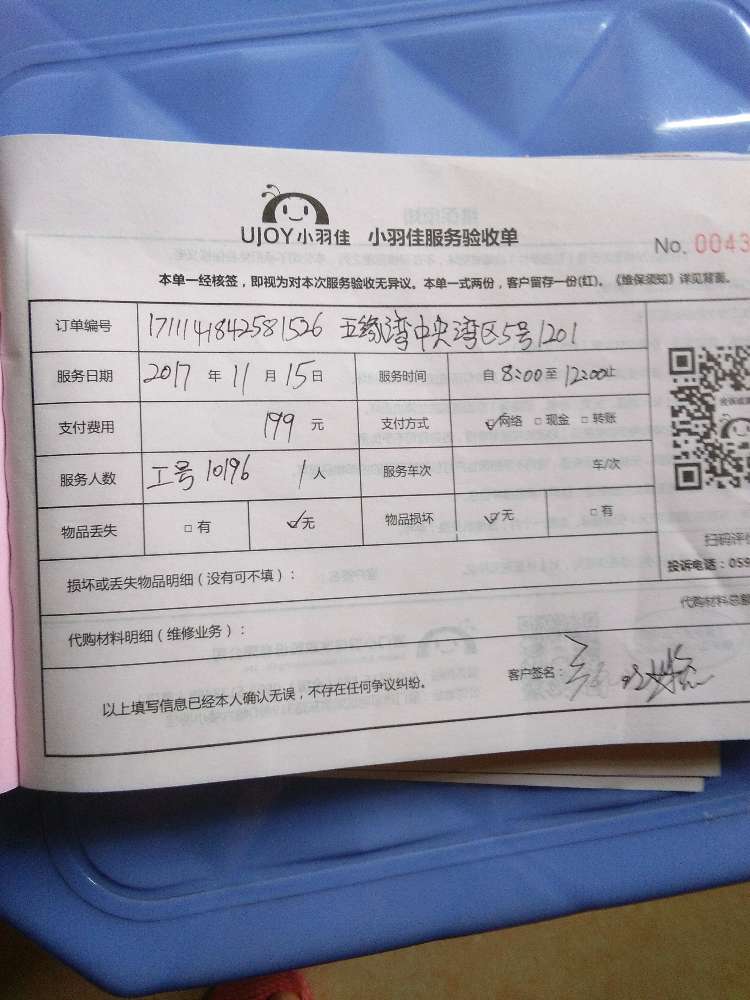 UJOY小羽佳 小羽佳服务验收单
No. 0043
本单一经核签，即视为对本次服务验收无异议。本单一式两份，客户留存一份(红)。《维保须知》详见背面。
订单编号 1711141842581526 五缘湾中央湾区5号1201
服务日期 2017 年 11 月 15 日 服务时间 自 8:00 至 12:00 止
支付费用 199 元 支付方式 ☑网络 □现金 □转账
服务人数 工号 10196 1人 服务车次 车/次
物品丢失 □有 ☑无 物品损坏 ☑无 □有
扫码评价
损坏或丢失物品明细（没有可不填）：
投诉电话：059
代购材料明细（维修业务）：
代购材料总
以上填写信息已经本人确认无误，不存在任何争议纠纷。
客户签名：